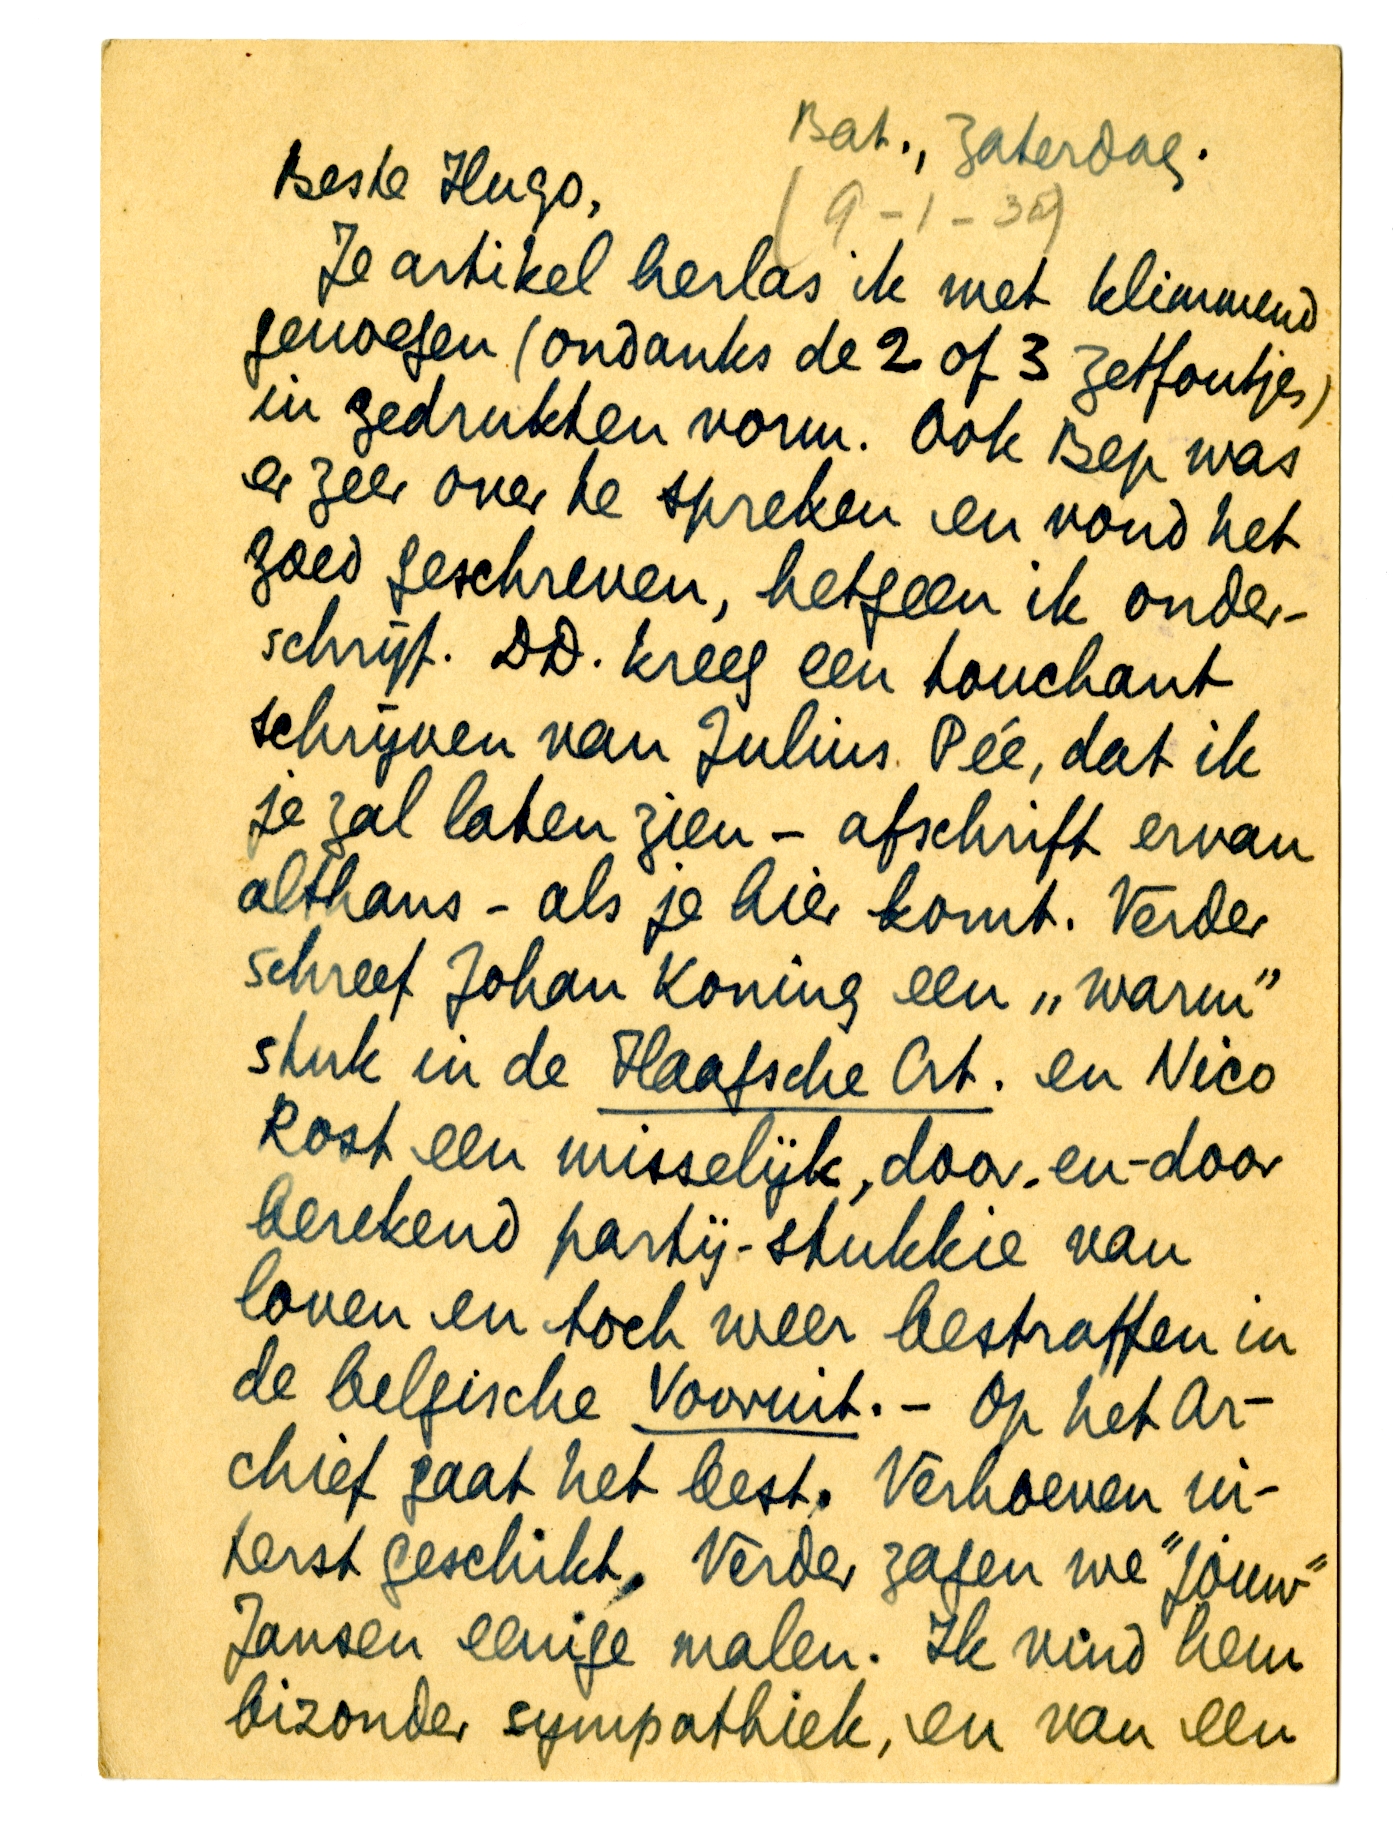 Bat., Zaterdag.
(9-1-39)
Beste Hugo,
Je artikel herlas ik met klimmend
genoegen (ondanks de 2 of 3 zetfoutjes)
in gedrukten vorm. Ook Bep was
er zeer over te spreken en vond het
goed geschreven, hetgeen ik onder-
schrijf. DD. kreeg een touchant
schrijven van Julius Pée, dat ik
je zal laten zien – afschrift ervan
althans – als je hier komt. Verder
schreef Johan Koning een „warm”
stuk in de Haagsche Crt. en Nico
Rost een misselijk, door-en-door
berekend partij-stukkie van
loven en toch weer bestraffen in
de belgische Vooruit. – Op het Ar-
chief gaat het best. Verhoeven ui-
terst geschikt. Verder zagen we "jouw"
Jansen eenige malen. Ik vind hem
bizonder sympathiek, en van een